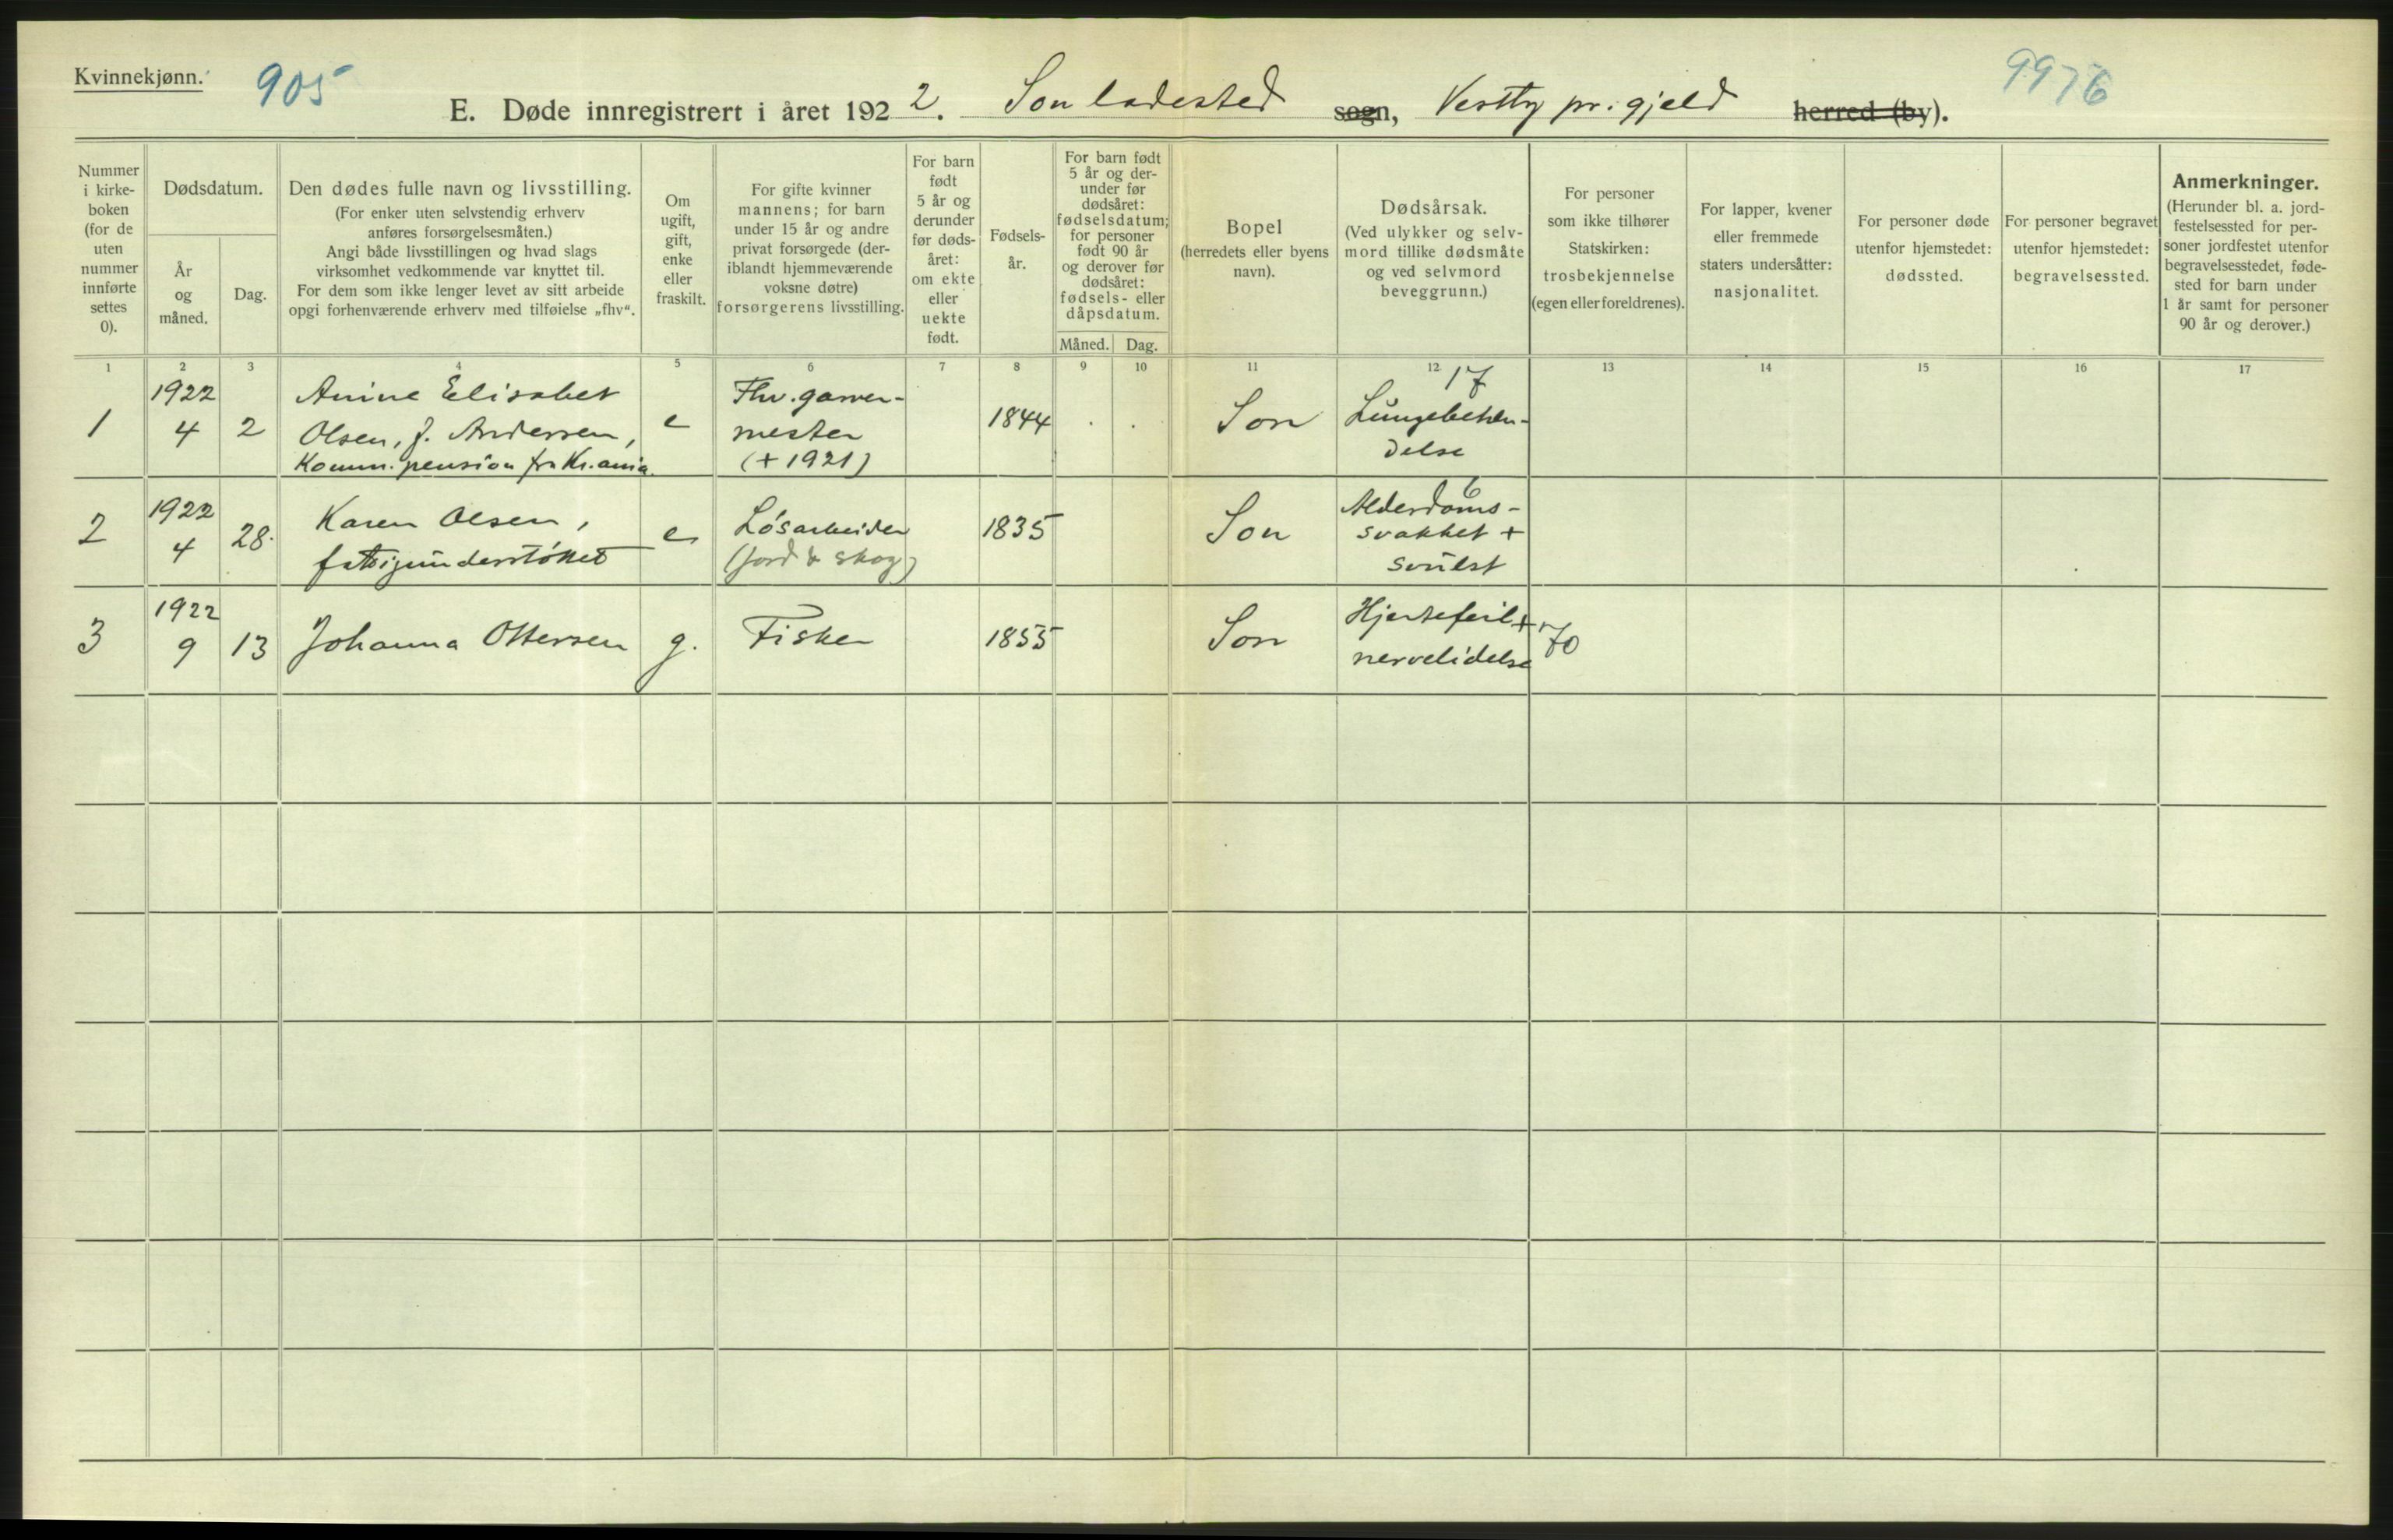 Kvinnekjønn. 905 9976
E. Døde innregistrert i året 1922. Son ladested sogn, Vestby pr.gjeld herred (by).
Nummer
i kirke-
boken
(for de
uten
nummer
innførte
settes
0).
Dødsdatum.
År
og
måned.
Dag.
Den dødes fulle navn og livsstilling.
(For enker uten selvstendig erhverv
anføres forsørgelsesmåten.)
Angi både livsstillingen og hvad slags
virksomhet vedkommende var knyttet til.
For dem som ikke lenger levet av sitt arbeide
opgi forhenværende erhverv med tilføielse „fhv“.
Om
ugift,
gift,
enke
eller
fraskilt.
For gifte kvinner
mannens; for barn
under 15 år og andre
privat forsørgede (der-
iblandt hjemmeværende
voksne døtre)
forsørgerens livsstilling.
For barn
født
5 år og
derunder
før døds-
året:
om ekte
eller
uekte
født.
Fødsels-
år.
For barn født
5 år og der-
under før
dødsåret:
fødselsdatum;
for personer
født 90 år
og derover før
dødsåret:
fødsels- eller
dåpsdatum.
Måned. Dag.
Bopel
(herredets eller byens
navn).
Dødsårsak.
(Ved ulykker og selv-
mord tillike dødsmåte
og ved selvmord
beveggrunn.)
For personer
som ikke tilhører
Statskirken:
trosbekjennelse
(egen eller foreldrenes).
For lapper, kvener
eller fremmede
staters undersåtter:
nasjonalitet.
For personer døde
utenfor hjemstedet:
dødssted.
For personer begravet
utenfor hjemstedet:
begravelsessted.
Anmerkninger.
(Herunder bl. a. jord-
festelsessted for per-
soner jordfestet utenfor
begravelsesstedet, føde-
sted for barn under
1 år samt for personer
90 år og derover.)
1 2 3 4 5 6 7 8 9 10 11 12 13 14 15 16 17
1
1922
4
2
Anine Elisabet
Olsen, f. Andersen,
Komm. pension fra Kr.ania.
e
Fhv. garver-
mester
(+ 1921)
1844
Son
17
Lungebeten-
delse
2
1922
4
28.
Karen Olsen,
fattigunderstøttet
e
Løsarbeider
(jord & skog)
1835
Son
6
Alderdoms-
svakhet +
svulst
3
1922
9
13
Johanna Ottersen
g.
Fisker
1855
Son
Hjertefeil +
nervelidelse
70